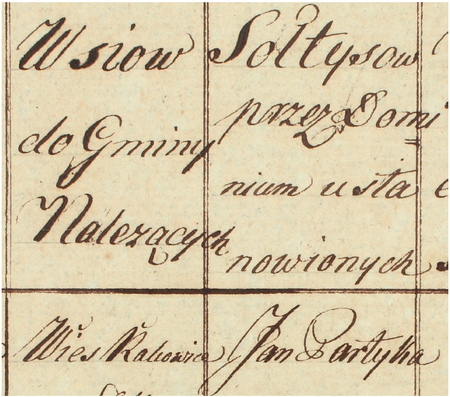 Wsiow
do Gminy
Nalezących
Sołtysow
przez Domi
nium usta
nowionych
Wieś Rakowice
Jan Partyka